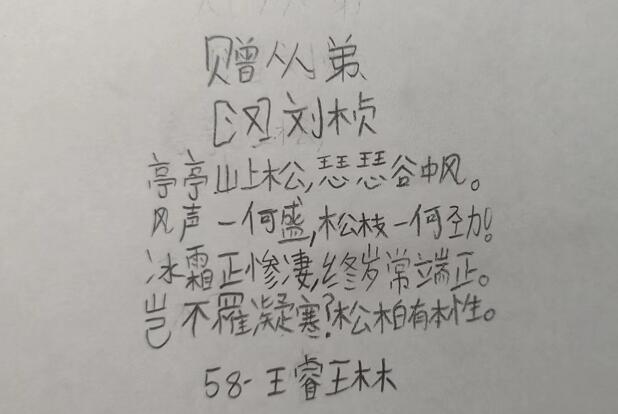 赠从弟
[汉]刘桢
亭亭山上松,瑟瑟谷中风。
风声一何盛,松枝一何劲!
冰霜正惨凄,终岁常端正。
岂不罹凝寒?松柏有本性。
58-王睿王林木